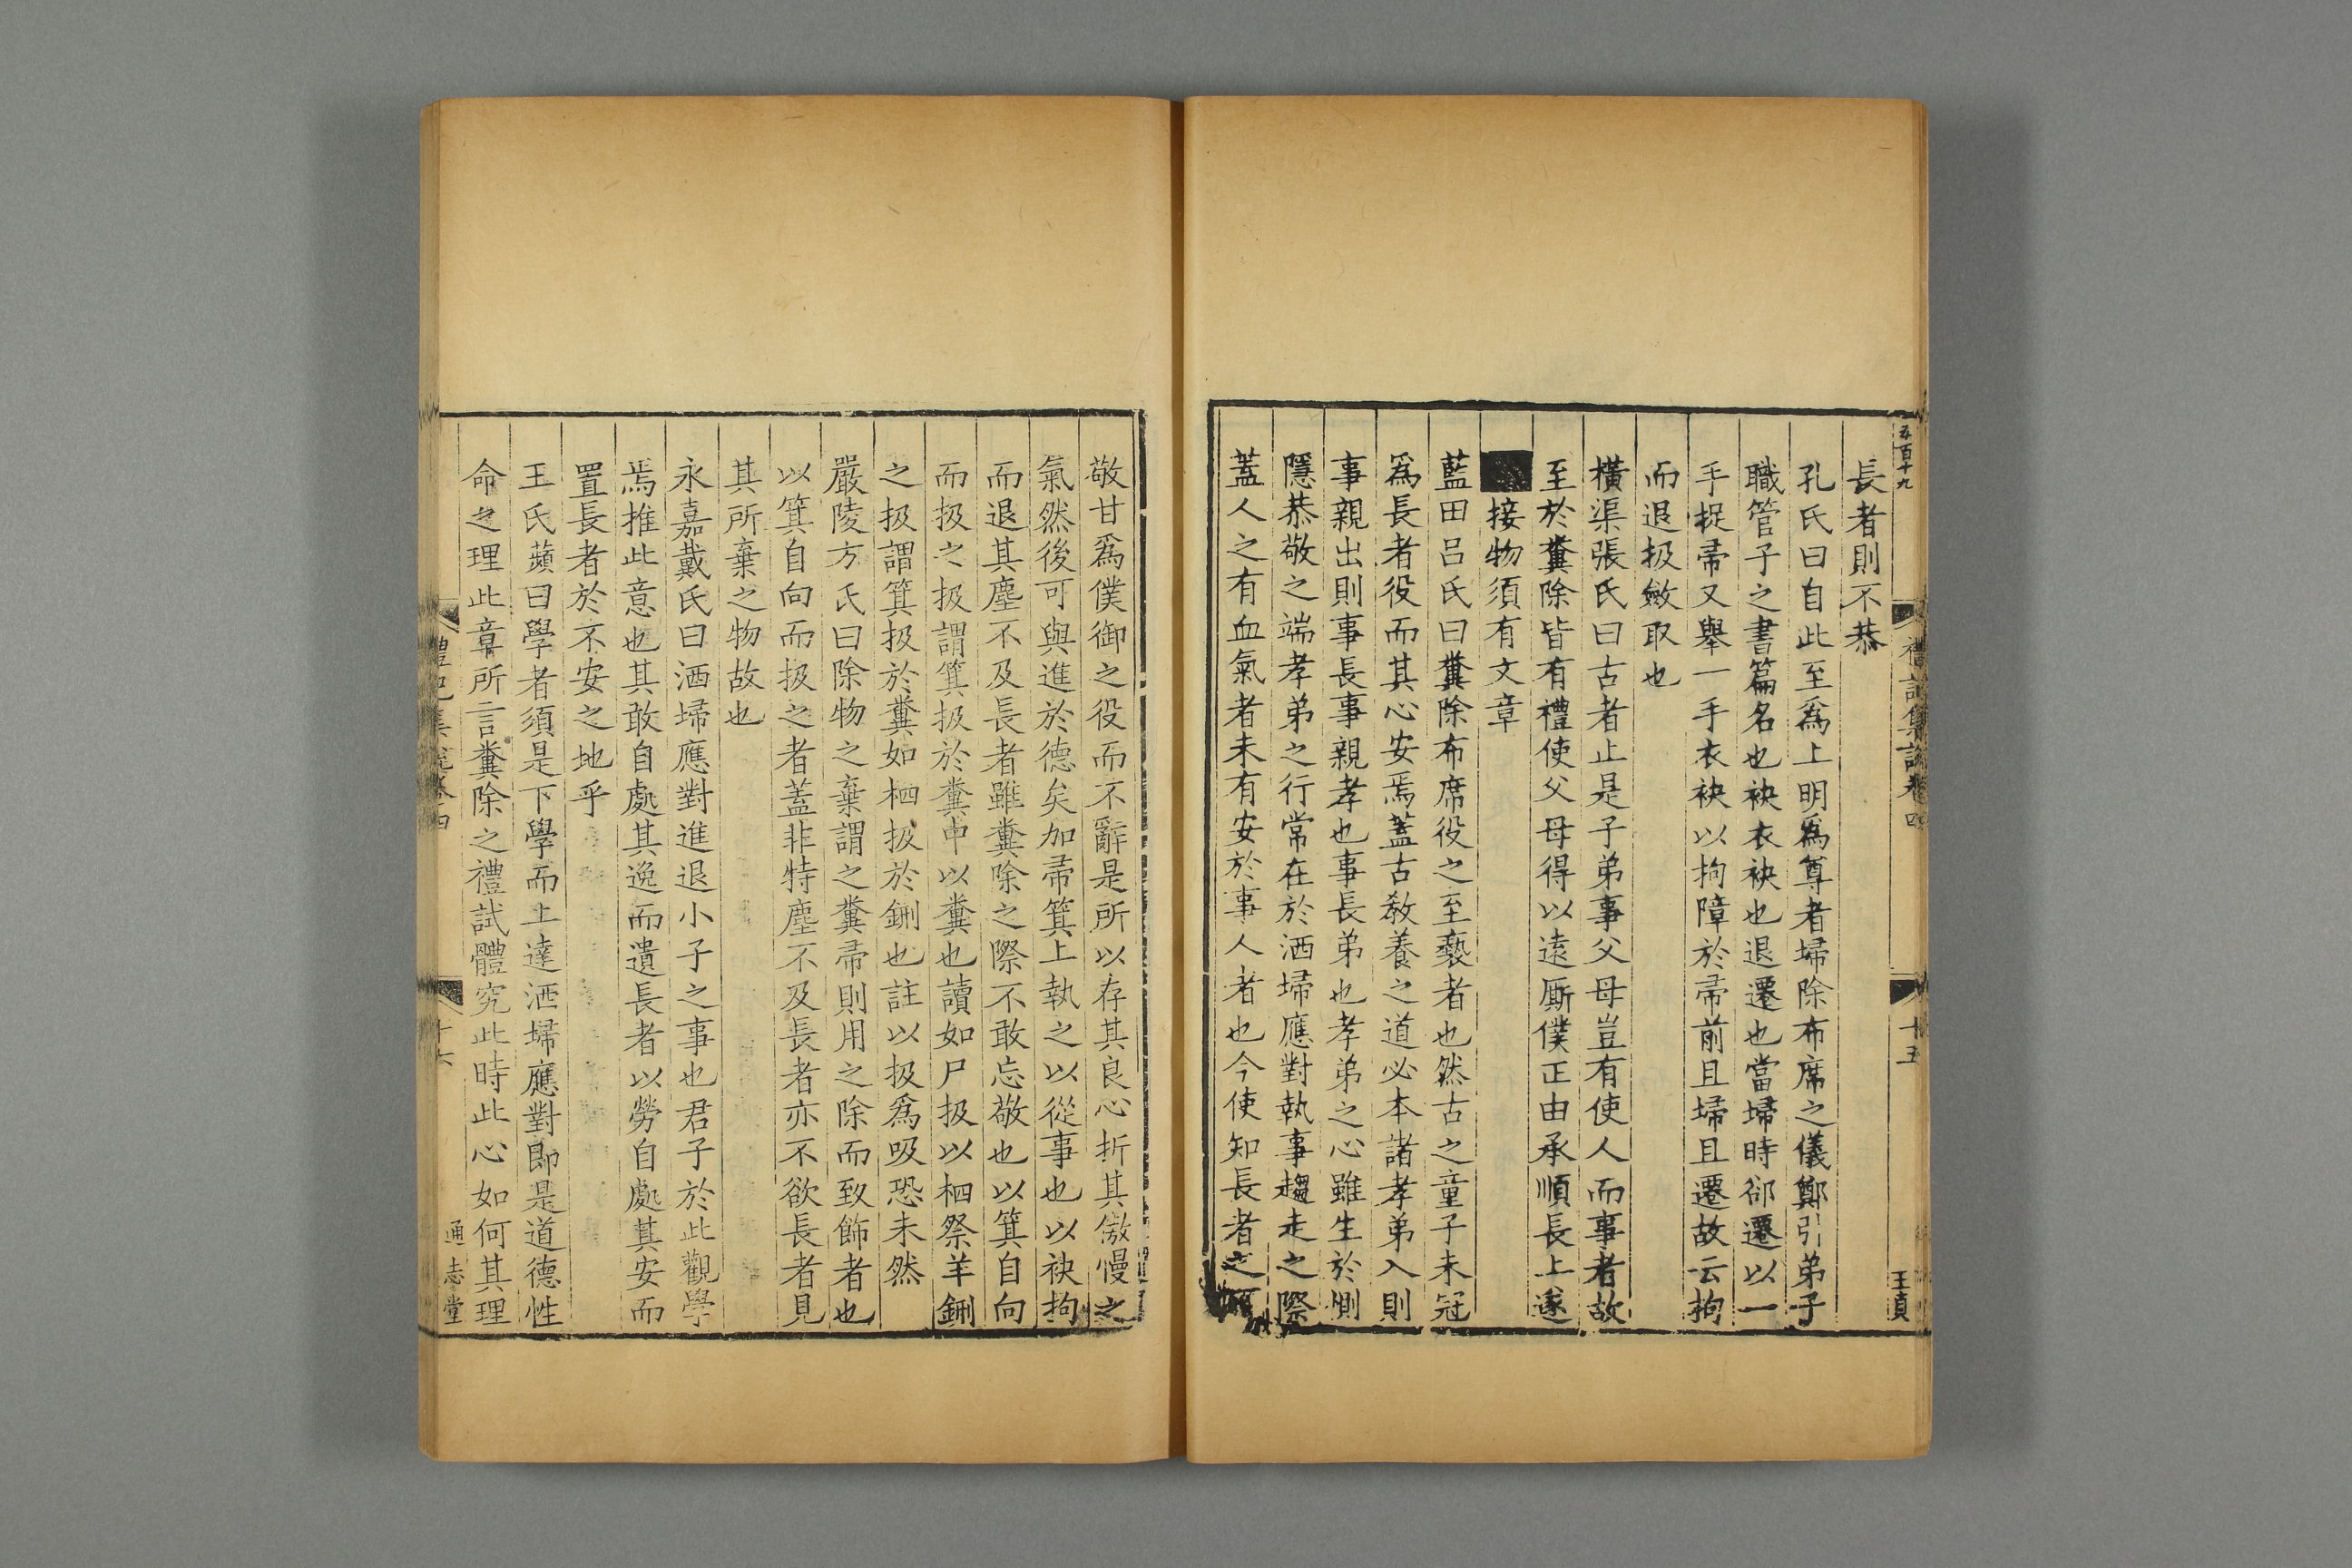 五百十九
禮記集說卷四
十五
王貞
長者則不恭
孔氏曰自此至爲上明爲尊者埽除布席之儀鄭引弟子
職管子之書篇名也袂衣袂也退遷也當埽時郤遷以一
手捉帚又舉一手衣袂以拘障於帚前且埽且遷故云拘
而退扱斂取也
橫渠張氏曰古者止是子弟事父母豈有使人而事者故
至於糞除皆有禮使父母得以遠厮僕正由承順長上遂
接物須有文章
藍田呂氏曰糞除布席役之至褻者也然古之童子未冠
爲長者役而其心安焉蓋古敎養之道必本諸孝弟入則
事親出則事長事親孝也事長弟也孝弟之心雖生於惻
隱恭敬之端孝弟之行常在於洒埽應對執事趨走之際
蓋人之有血氣者未有安於事人者也今使知長者之
敬甘爲僕御之役而不辭是所以存其良心折其傲慢之
氣然後可與進於德矣加帚箕上執之以從事也以袂拘
而退其塵不及長者雖糞除之際不敢忘敬也以箕自向
而扱之扱謂箕扱於糞中以糞也讀如尸扱以柶祭羊鉶
之扱謂箕扱於糞如柶扱於鉶也註以扱爲吸恐未然
嚴陵方氏曰除物之棄謂之糞帚則用之除而致飾者也
以箕自向而扱之者蓋非特塵不及長者亦不欲長者見
其所棄之物故也
永嘉戴氏曰洒埽應對進退小子之事也君子於此觀學
焉推此意也其敢自處其逸而遺長者以勞自處其安而
置長者於不安之地乎
王氏蘋曰學者須是下學而上達洒埽應對即是道德性
命之理此章所言糞除之禮試體究此時此心如何其理
禮記集說卷四
十六
通志堂